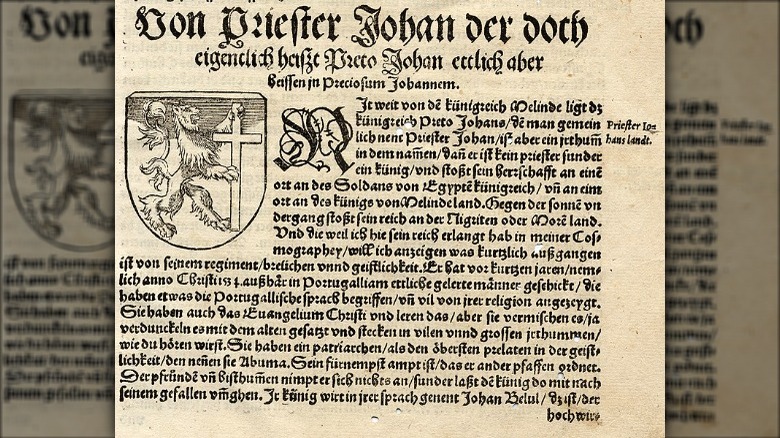 Von Priester Johan der doch
eigentlich heiszt Preto Johan ettlich aber
heissen jn Preciosum Johannem.
NJt weit von dē künigreich Melinde ligt dz
künigreich Preto Johans/dē man gemein
lich nent Priester Johan/ist aber ein jrthum̄
in dem nam̄en/dan̄ er ist kein priester sunder
ein künig/vnd stoßt sein herrschafft an einē
ort an des Soldans von Egyptē künigreich/ vn̄ an eim
ort an des künigs von Melinde land. Gegen der sonnē vn
dergang stoßt sein reich an der Nigriten oder Morē land.
Vnd die weil ich hie sein reich erlangt hab in meiner Cos-
mographey/will ich anzeigen was kurtzlich außgangen
ist von seinem regiment/breüchen vnnd geistlichkeit. Er hat vor kurtzen jaren/nem-
lich anno Christi 1534. außhār in Portugalliam ettliche gelerte männer geschickt/ die
haben etwas die Portugallische sprach begriffen/vn̄ vil von jrer religion angezeygt.
Sie haben auch das Euangelium Christi vnd leren das/aber sie vermischen es/ja
verdunckeln es mit dem alten gesatz vnd stecken in vilen vnnd grossen jrthummen/
wie du hören wirst. Sie haben ein patriarchen/als den öbersten prelaten in der geist-
lichkeit/den nen̄en sie Abuma. Sein fürnempst ampt ist/das er ander pfaffen ordnet.
Der pfründē vn̄ bisthum̄en nimpt er sich nichts an/sunder laßt dē künig do mit nach
seinem gefallen vm̄ghen. Jr künig wirt in jrer sprach genent Johan Belul/ dz ist/der
hochwir-
Priester Jo-
hans landt.